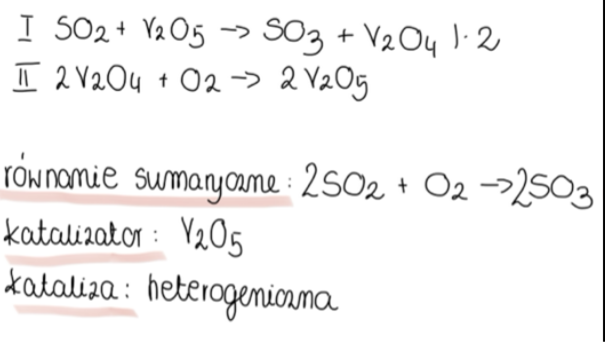 I SO2 + V2O5 -> SO3 + V2O4 |·2
II 2V2O4 + O2 -> 2V2O5
równanie sumaryczne: 2SO2 + O2 -> 2SO3
katalizator: V2O5
kataliza: heterogeniczna